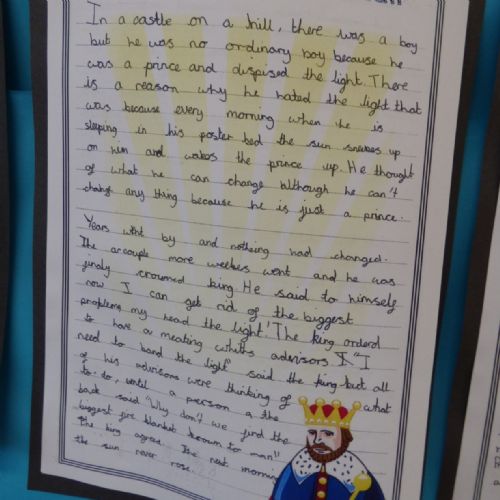 In a castle on a hill, there was a boy
but he was no ordinary boy because he
was a prince and dispised the light. There
is a reason why he hated the light that
was because every morning when he is
sleeping in his poster bed the sun sneaks up
on him and wakes the prince up. He thought
of what he can change although he can't
change any thing because he is just a prince.
Years went by and nothing had changed.
The a couple more weekes went and he was
finaly crowned king. He said to himself
now I can get rid of the biggest
problem my head the light! The king orderd
to have a meating advisors "I
need to band the light" said the king but all
of his advisors were thinking of what
to do, until a person a the
back said "Why don't we find the
biggest fire blanket known to man"
The king agree. The next morning
the sun never rose.